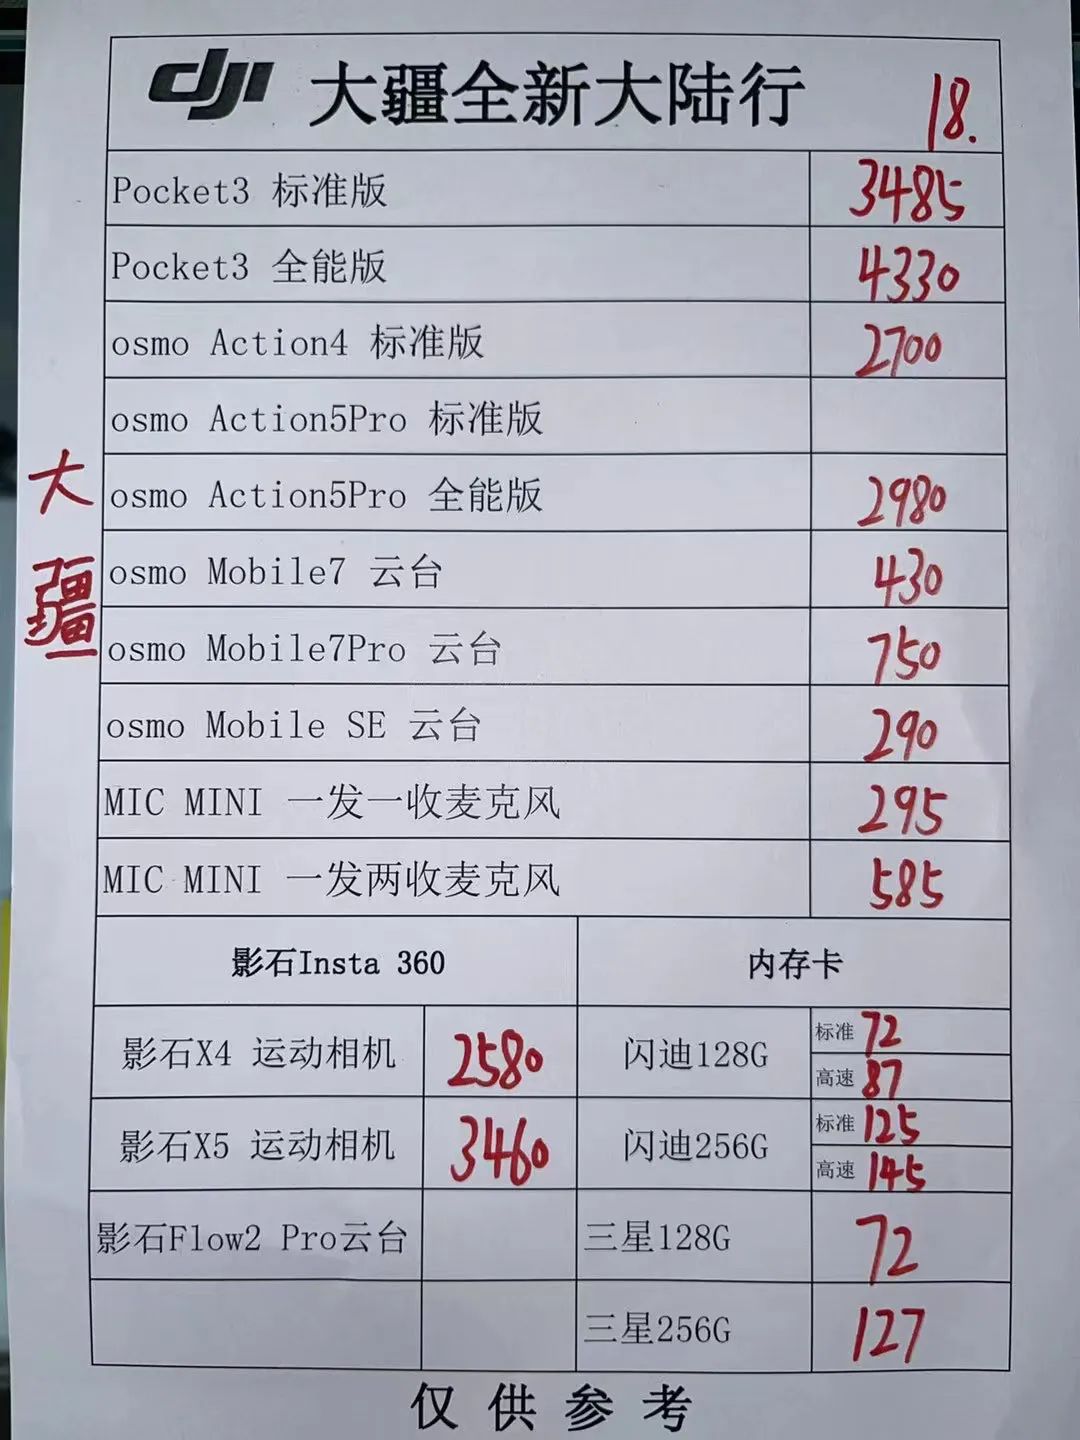 dji 大疆全新大陆行 18.
Pocket3 标准版 3485
Pocket3 全能版 4330
osmo Action4 标准版 2700
osmo Action5Pro 标准版
大疆
osmo Action5Pro 全能版 2980
osmo Mobile7 云台 430
osmo Mobile7Pro 云台 750
osmo Mobile SE 云台 290
MIC MINI 一发一收麦克风 295
MIC MINI 一发两收麦克风 585
影石Insta 360 内存卡
影石X4 运动相机 2580 闪迪128G 标准 72
高速 87
影石X5 运动相机 3460 闪迪256G 标准 125
高速 145
影石Flow2 Pro云台 三星128G 72
三星256G 127
仅供参考